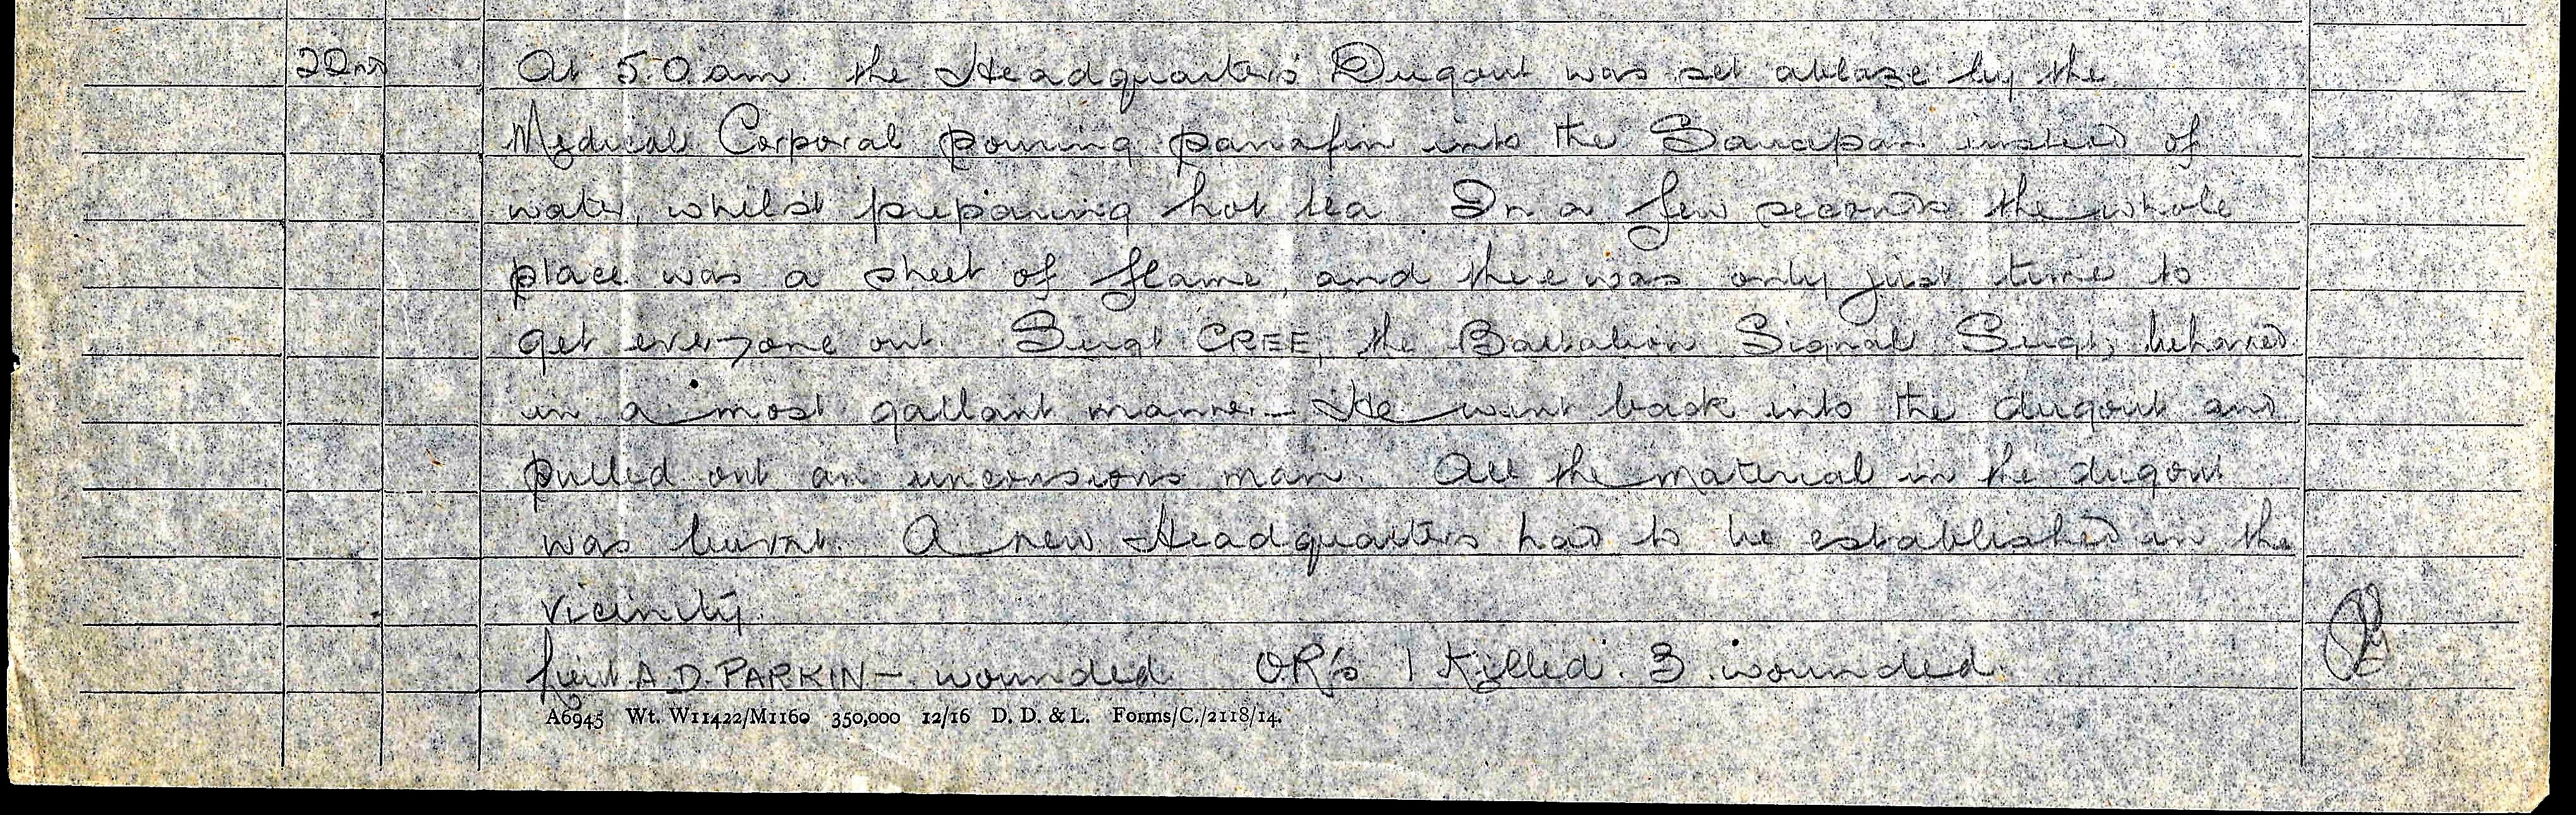 22nd At 5.0 am the Headquarters Dugout was set ablaze by the
Medical Corporal pouring parafin into the instead of
water, whilst preparing hot tea In a few seconds the whole
place was a sheet of flame, and there was only just time to
get everyone out. Sergt CREE, the Battalion Signal Sergt, behaved
in a most gallant manner – He went back into the dugout and
pulled out an unconsious man. All the material in the dugout
was burnt. A new Headquarters had to be established in the
vicinity.
Lieut A.D. PARKIN – wounded OR's 1 Killed. 3 wounded.
A6945 Wt. W11422/M1160 350,000 12/16 D. D. & L. Forms/C./2118/14.